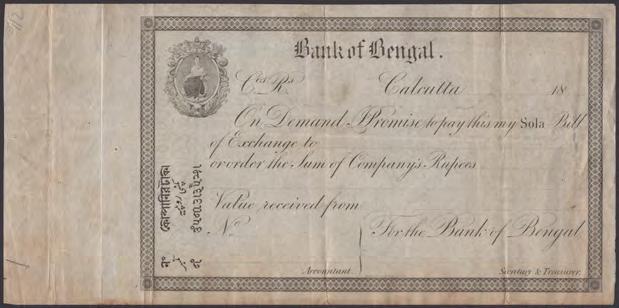 Bank of Bengal.
Co's Rs Calcutta 18
On Demand I Promise to pay this my Sola Bill
of Exchange to
or order the Sum of Company's Rupees
Value received from
No For the Bank of Bengal
Accountant. Secretary & Treasurer.
কোম্পানির টাকা